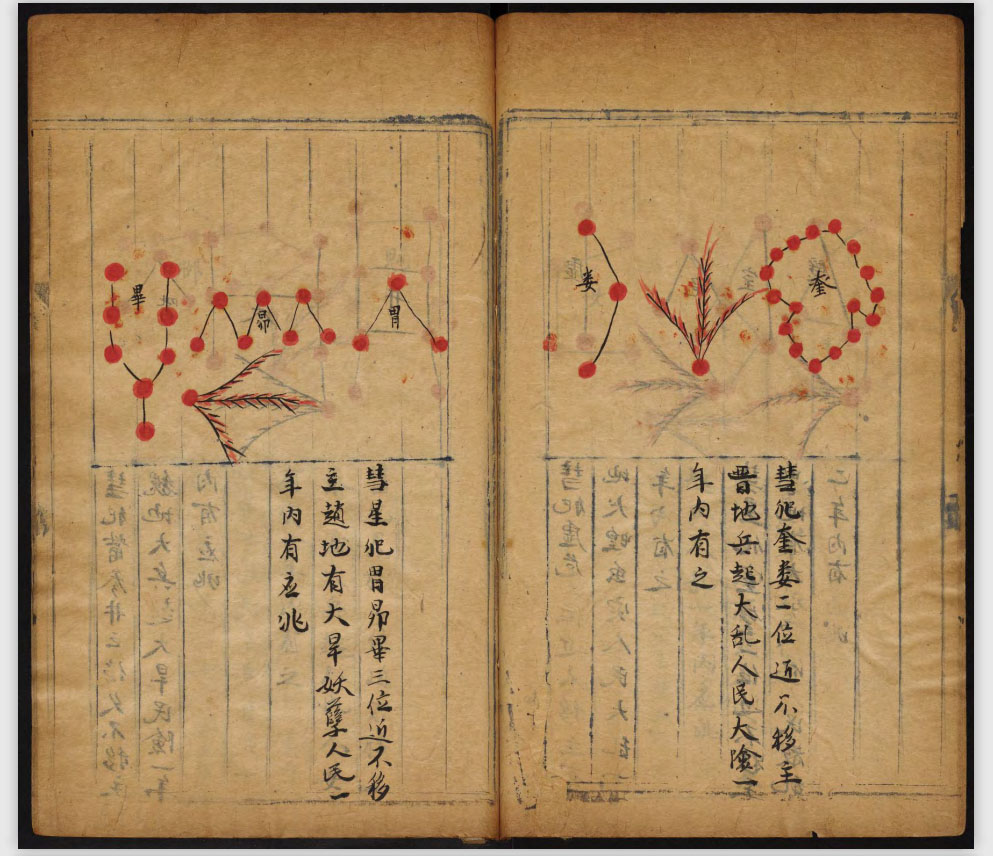 奎
婁
彗犯奎婁二位近不移主
晋地兵起大乱人民大險一
年内有之
胃
昴
畢
彗星犯胃昴畢三位近不移
主趙地有大旱妖孽人民一
年内有应兆